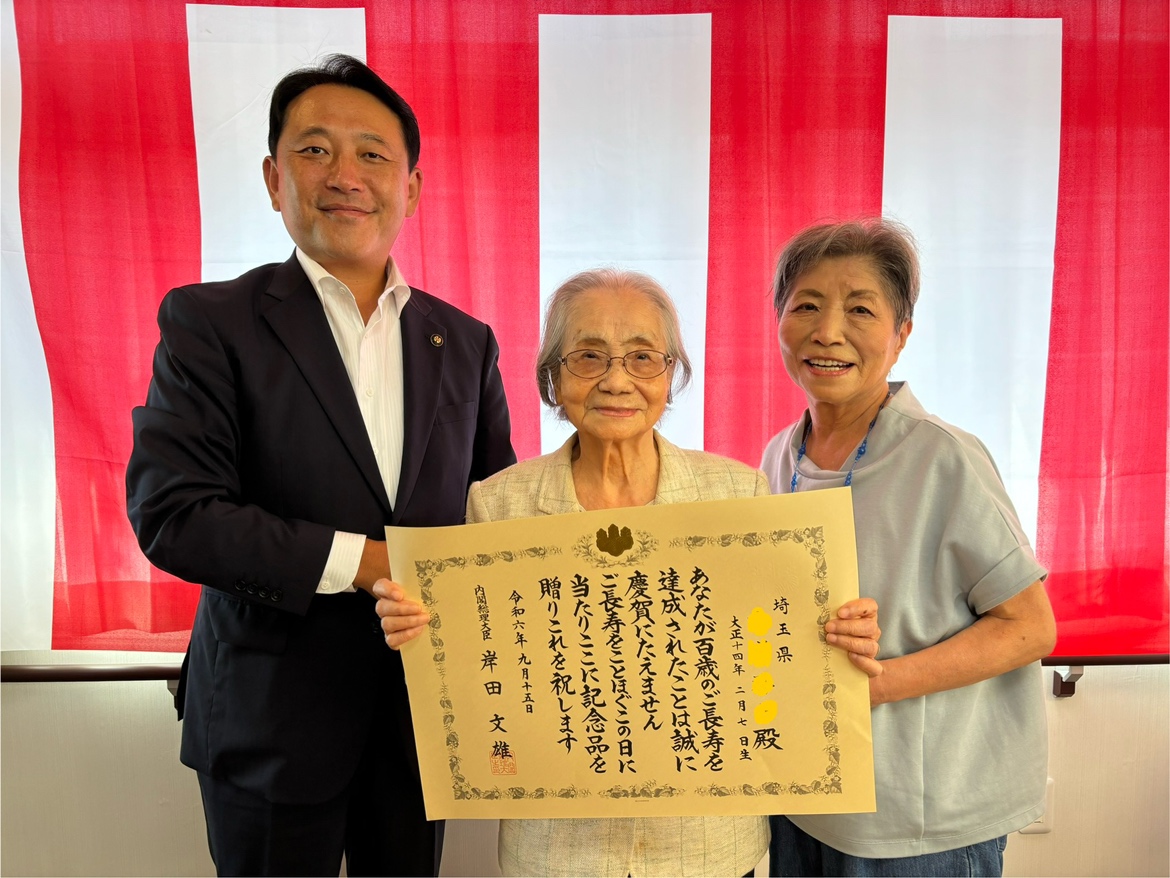 埼玉県
殿
大正十四年 二月七日生
あなたが百歳のご長寿を
達成されたことは誠に
慶賀にたえません
ご長寿をことほぐこの日に
当たりここに記念品を
贈りこれを祝します
令和六年九月十五日
内閣総理大臣 岸田文雄